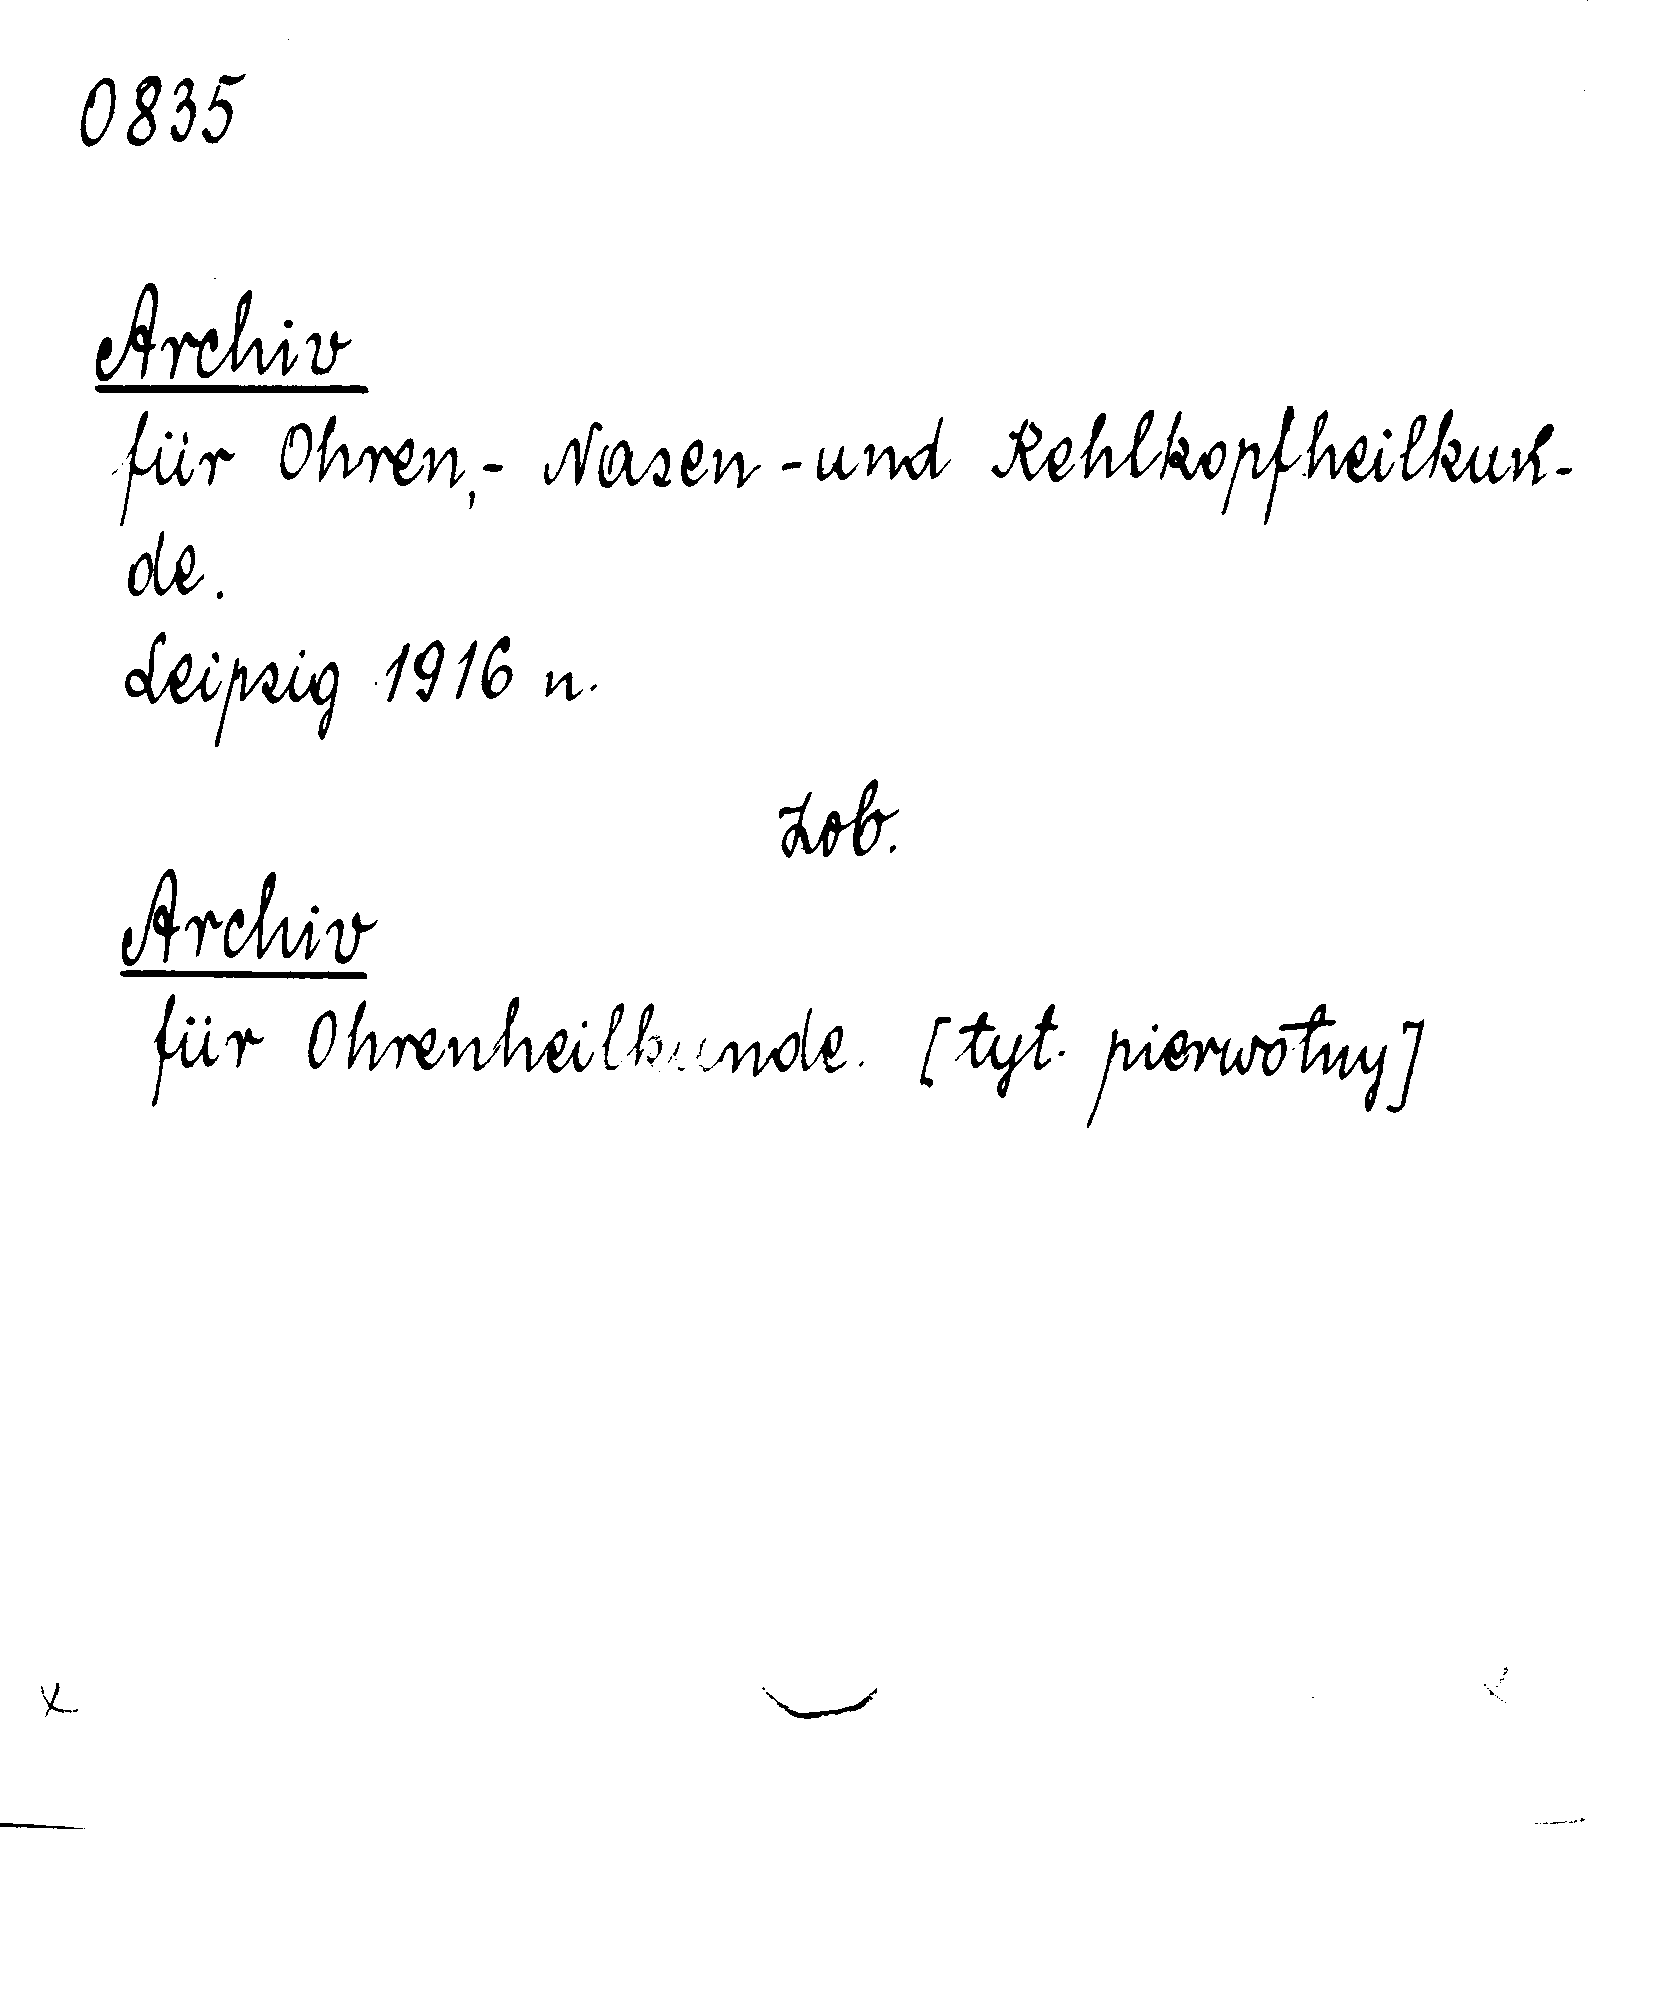 0835
Archiv
für Ohren,- Nasen - und Kehlkopfheilkun-
de.
Leipzig 1916 n.
Zob.
Archiv
für Ohrenheilkunde. [tyt. pierwotny]